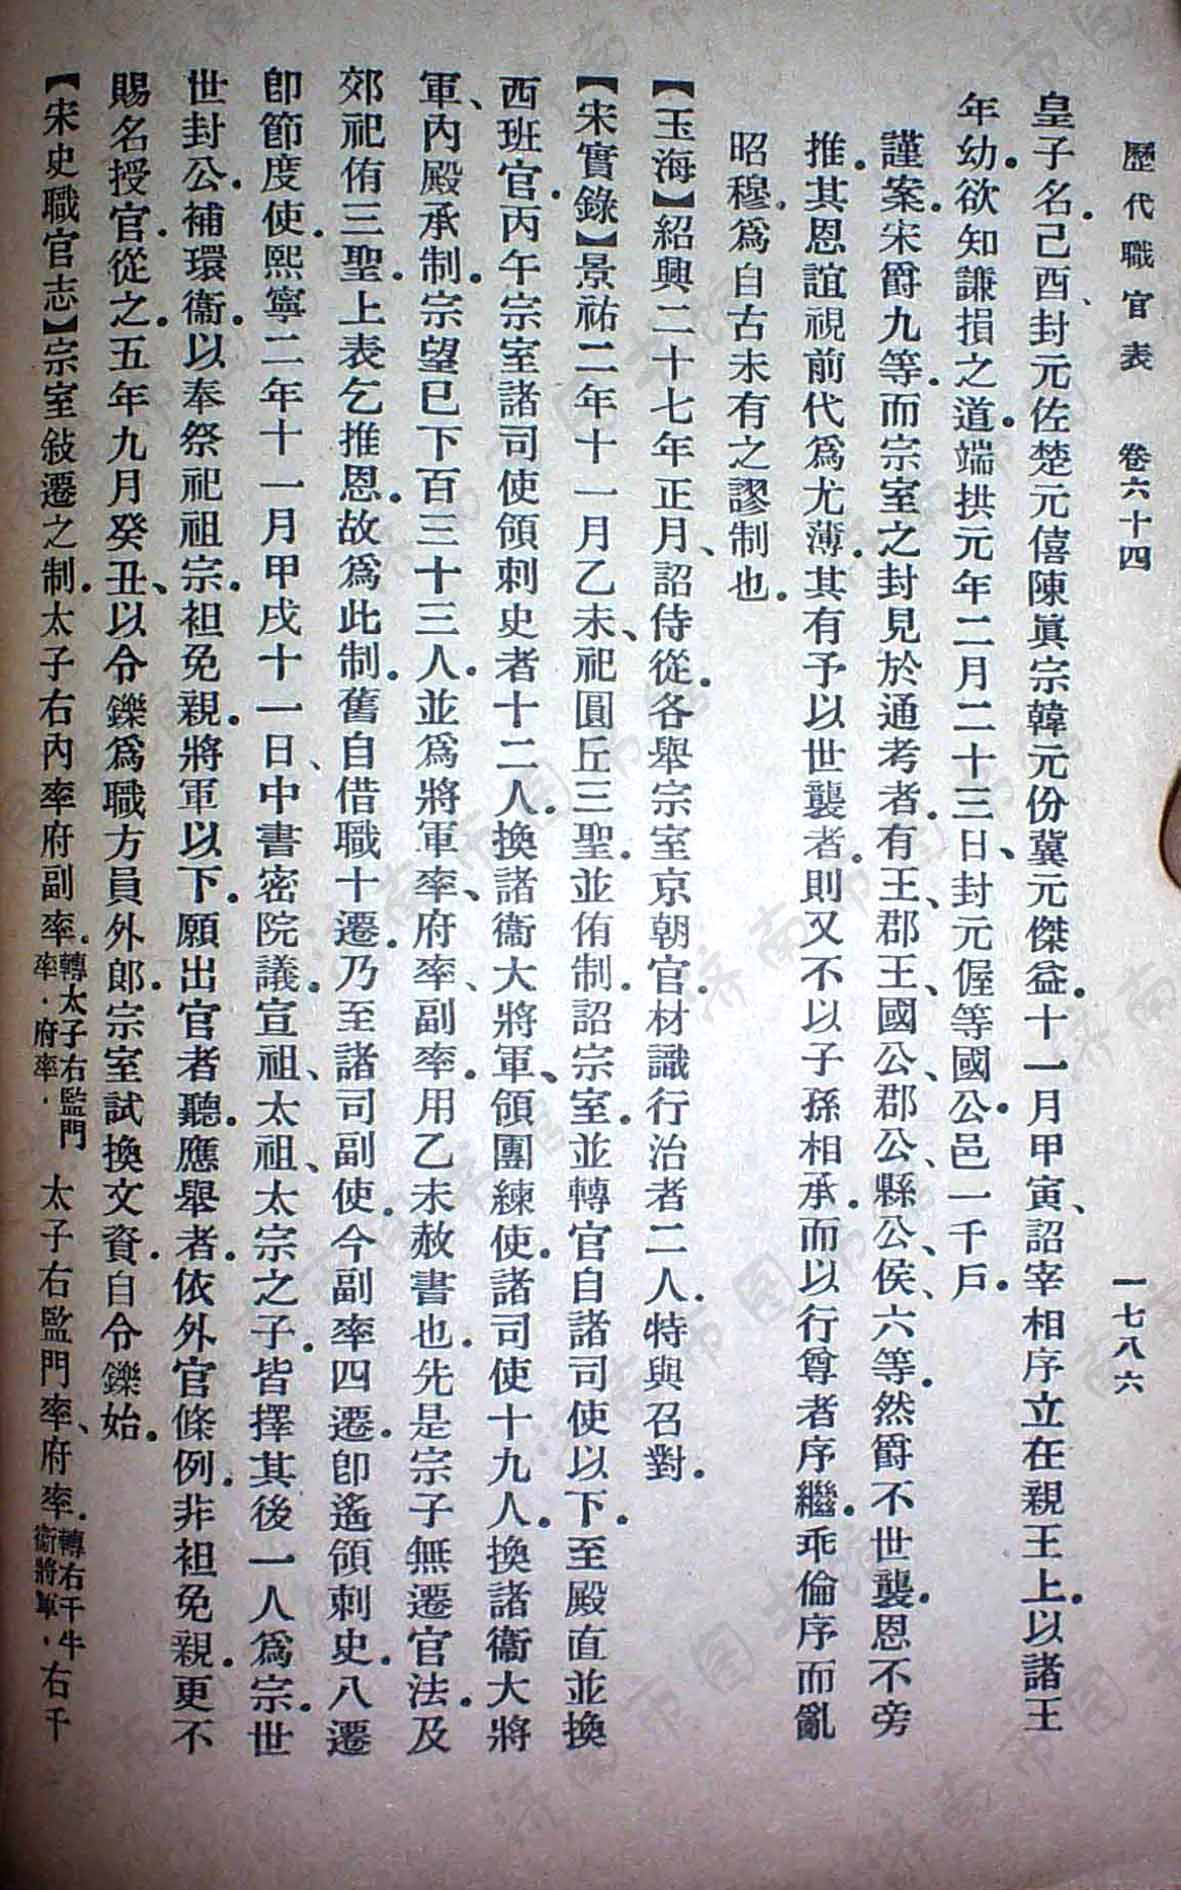 歷代職官表　卷六十四　一七八六
皇子名。己酉、封元佐楚元僖陳眞宗韓元份冀元傑益。十一月甲寅、詔宰相序立在親王上。以諸王
年幼。欲知謙損之道。端拱元年二月二十三日、封元偓等國公。邑一千戶。
謹案。宋爵九等。而宗室之封見於通考者。有王、郡王、國公、郡公、縣公、侯、六等。然爵不世襲。恩不旁
推。其恩誼視前代爲尤薄。其有予以世襲者。則又不以子孫相承。而以行尊者序繼。乖倫序而亂
昭穆。爲自古未有之謬制也。
【玉海】紹興二十七年正月、詔侍從。各舉宗室京朝官。材識行治者二人。特與召對。
【宋實錄】景祐二年十一月乙未、祀圓丘三聖。並侑制。詔宗室。並轉官自諸司使以下。至殿直並換
西班官。丙午宗室諸司使領刺史者十二人。換諸衞大將軍、領團練使。諸司使十九人。換諸衞大將
軍、內殿承制。宗望巳下百三十三人。並爲將軍、率府率、副率。用乙未赦書也。先是宗子無遷官法。及
郊祀侑三聖。上表乞推恩。故爲此制。舊自借職十遷。乃至諸司副使。今副率四遷。卽遙領刺史。八遷
卽節度使。熙寧二年十一月甲戌十一日、中書密院議。宣祖、太祖、太宗之子。皆擇其後一人爲宗。世
世封公。補環衞。以奉祭祀祖宗。袒免親。將軍以下。願出官者聽。應舉者。依外官條例。非袒免親。更不
賜名授官。從之。五年九月癸丑、以令鑠爲職方員外郎。宗室試換文資。自令鑠始。
【宋史職官志】宗室敍遷之制。太子右內率府副率。轉太子右監門率．府率．　太子右監門率、府率。轉右千牛衞將軍．右千